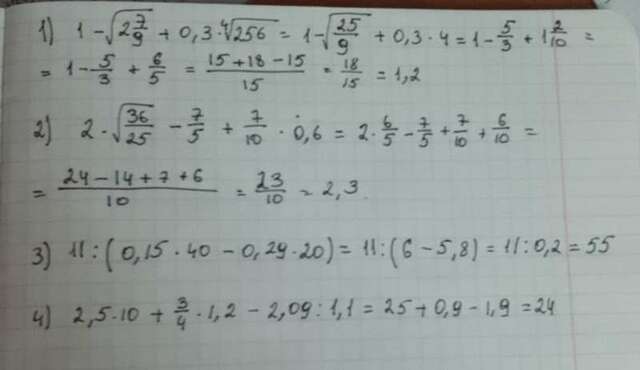 1) 1 - √(2 7/9) + 0,3 · ⁴√256 = 1 - √(25/9) + 0,3 · 4 = 1 - 5/3 + 1 2/10 =
= 1 - 5/3 + 6/5 = (15 + 18 - 15)/15 = 18/15 = 1,2
2) 2 · √(36/25) - 7/5 + 7/10 · 0,6 = 2 · 6/5 - 7/5 + 7/10 + 6/10 =
= (24 - 14 + 7 + 6)/10 = 23/10 = 2,3.
3) 11 : (0,15 · 40 - 0,29 · 20) = 11 : (6 - 5,8) = 11 : 0,2 = 55
4) 2,5 · 10 + 3/4 · 1,2 - 2,09 : 1,1 = 25 + 0,9 - 1,9 = 24